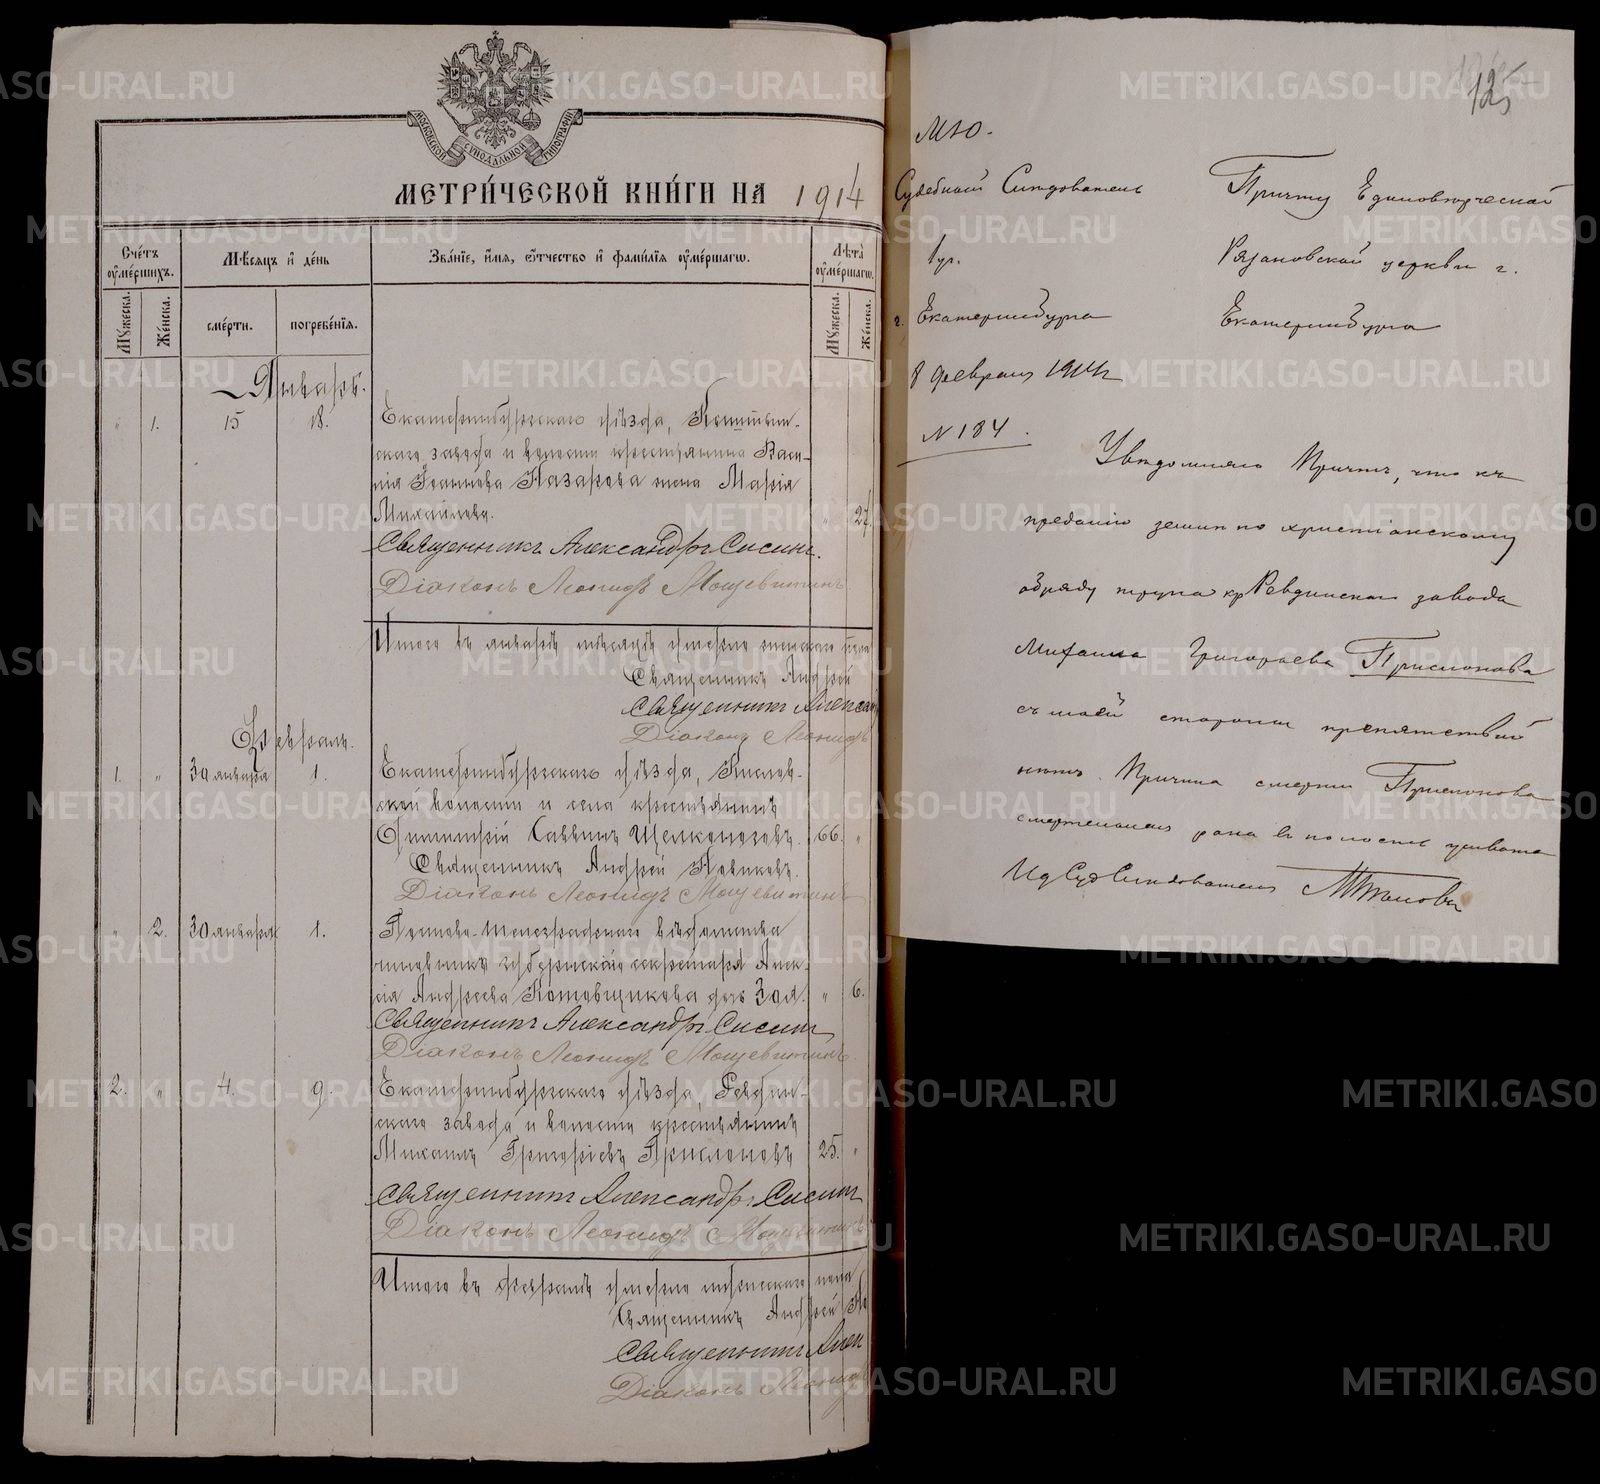 МОСКОВСКОЙ СУНОДАЛЬНОЙ ТИПОГРАФІИ
МЕТРИ́ЧЕСКОЙ КНИ́ГИ НА 1914
Сче́тъ оу҆ме́ршихъ.
Мѣ́сяцъ и҆ де́нь
Зва́нїе, и҆́мя, ѻ҆́тчество и҆ фами́лїя оу҆ме́ршагѡ.
Лѣ́та оу҆ме́ршагѡ.
Му́жеска.
Же́нска.
сме́рти.
погребе́нїя.
Му́жеска.
Же́нска.
Январь.
" 1. 15 18. Екатеринбургскаго уѣзда,
скаго завода и волости крестьянина Васи-
лія Іоаннова Назарова жена Марія
Михайлова. " 27.
Священникъ Александръ Сисинъ.
Діаконъ Леонидъ Мощевитинъ
Итого въ январѣ мѣсяцѣ умерло женскаго пола
Священникъ Андрей
Священникъ Алексан
Діаконъ Леонидъ
Февраль.
1. " 30 января 1. Екатеринбургскаго уѣзда, Кислов-
ской волости и села крестьянинъ
Димитрій Саввинъ Щелконоговъ. 66. "
Священникъ Андрей Новиковъ.
Діаконъ Леонидъ Мощевитинъ
" 2. 30 января 1. Почтово-телеграфнаго вѣдомства
чиновника губернскаго секретаря Алек-
сія Андреева Котовщикова дочь Зоя. " 6.
Священникъ Александръ Сисинъ
Діаконъ Леонидъ Мощевитинъ.
2. " 4. 9. Екатеринбургскаго уѣзда, Ревдин-
скаго завода и волости крестьянинъ
Михаилъ Григорьевъ Прислоновъ 25. "
Священникъ Александръ Сисинъ
Діаконъ Леонидъ Мощевитинъ
Итого въ февралѣ умерло мужескаго пола
Священникъ Андрей Но
Священникъ Алек
Діаконъ Леонидъ
125
МЮ.
Судебный Слѣдователь
1 уч.
г. Екатеринбурга
8 февраля 1914 г.
N 184.
Причту Единовѣрческой
Рязановской церкви г.
Екатеринбурга
Увѣдомляю Причтъ, что къ
преданію землѣ по христіанскому
обряду трупа кр Ревдинскаго завода
Михаила Григорьева Прислонова
съ моей стороны препятствій
нѣтъ. Причина смерти Прислонова
смертельная рана въ полость живота
Ид Суд Слѣдователя
METRIKI.GASO-URAL.RU